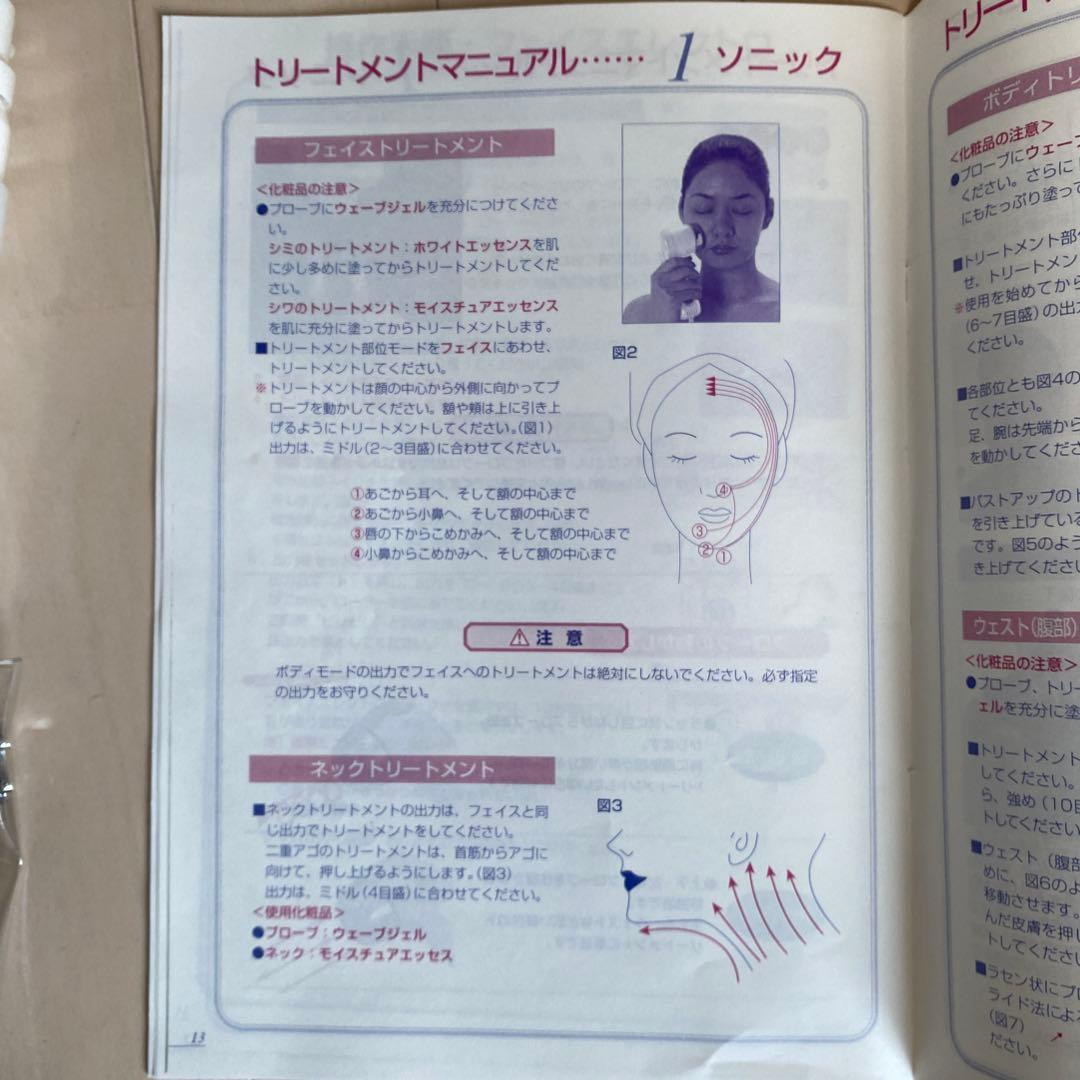 トリートメントマニュアル…… 1 ソニック
フェイストリートメント
<化粧品の注意>
●プローブにウェーブジェルを充分につけてくださ
い。
シミのトリートメント：ホワイトエッセンスを肌
に少し多めに塗ってからトリートメントしてくだ
さい。
シワのトリートメント：モイスチュアエッセンス
を肌に充分に塗ってからトリートメントします。
■トリートメント部位モードをフェイスにあわせ、
トリートメントしてください。
※トリートメントは顔の中心から外側に向かってプ
ローブを動かしてください。額や頬は上に引き上
げるようにトリートメントしてください。(図1)
出力は、ミドル(2〜3目盛)に合わせてください。
図2
①あごから耳へ、そして額の中心まで
②あごから小鼻へ、そして額の中心まで
③唇の下からこめかみへ、そして額の中心まで
④小鼻からこめかみへ、そして額の中心まで
④
③
②
①
⚠注意
ボディモードの出力でフェイスへのトリートメントは絶対にしないでください。必ず指定
の出力をお守りください。
ネックトリートメント
■ネックトリートメントの出力は、フェイスと同
じ出力でトリートメントをしてください。
二重アゴのトリートメントは、首筋からアゴに
向けて、押し上げるようにします。(図3)
出力は、ミドル(4目盛)に合わせてください。
<使用化粧品>
●プローブ：ウェーブジェル
●ネック：モイスチュアエッセス
図3
13
トリート
ボディトリ
<化粧品の注意>
●プローブにウェーブ
ください。さらに
にもたっぷり塗って
■トリートメント部
せ、トリートメン
※使用を始めてから
(6〜7目盛)の出力
ください。
■各部位とも図4の
てください。
足、腕は先端から
を動かしてくださ
■バストアップのト
を引き上げている
です。図5のよう
き上げてください
ウェスト(腹部)
<化粧品の注意>
●プローブ、トリー
ェルを充分に塗
■トリートメント
してください。
ら、強め(10目
トしてください
■ウェスト(腹部
めに、図6のよ
移動させます。
んだ皮膚を押し
トしてください
■ラセン状にプロ
ライド法による
(図7)
ださい。